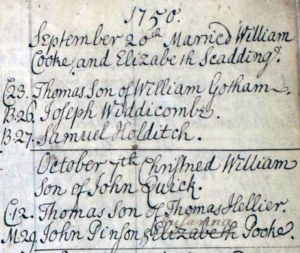 1750.
September 20th Married William
Cooke, and Elizabeth Scadding.
C.23. Thomas Son of William Gotham.
B.26. Joseph Widdicombe.
B.27. Samuel Holditch.
October 7th Christned William
Son of John Quick.
C.12. Thomas Son of Thomas Hellier.
M.29. John Pinson & Elizabeth Pooke.